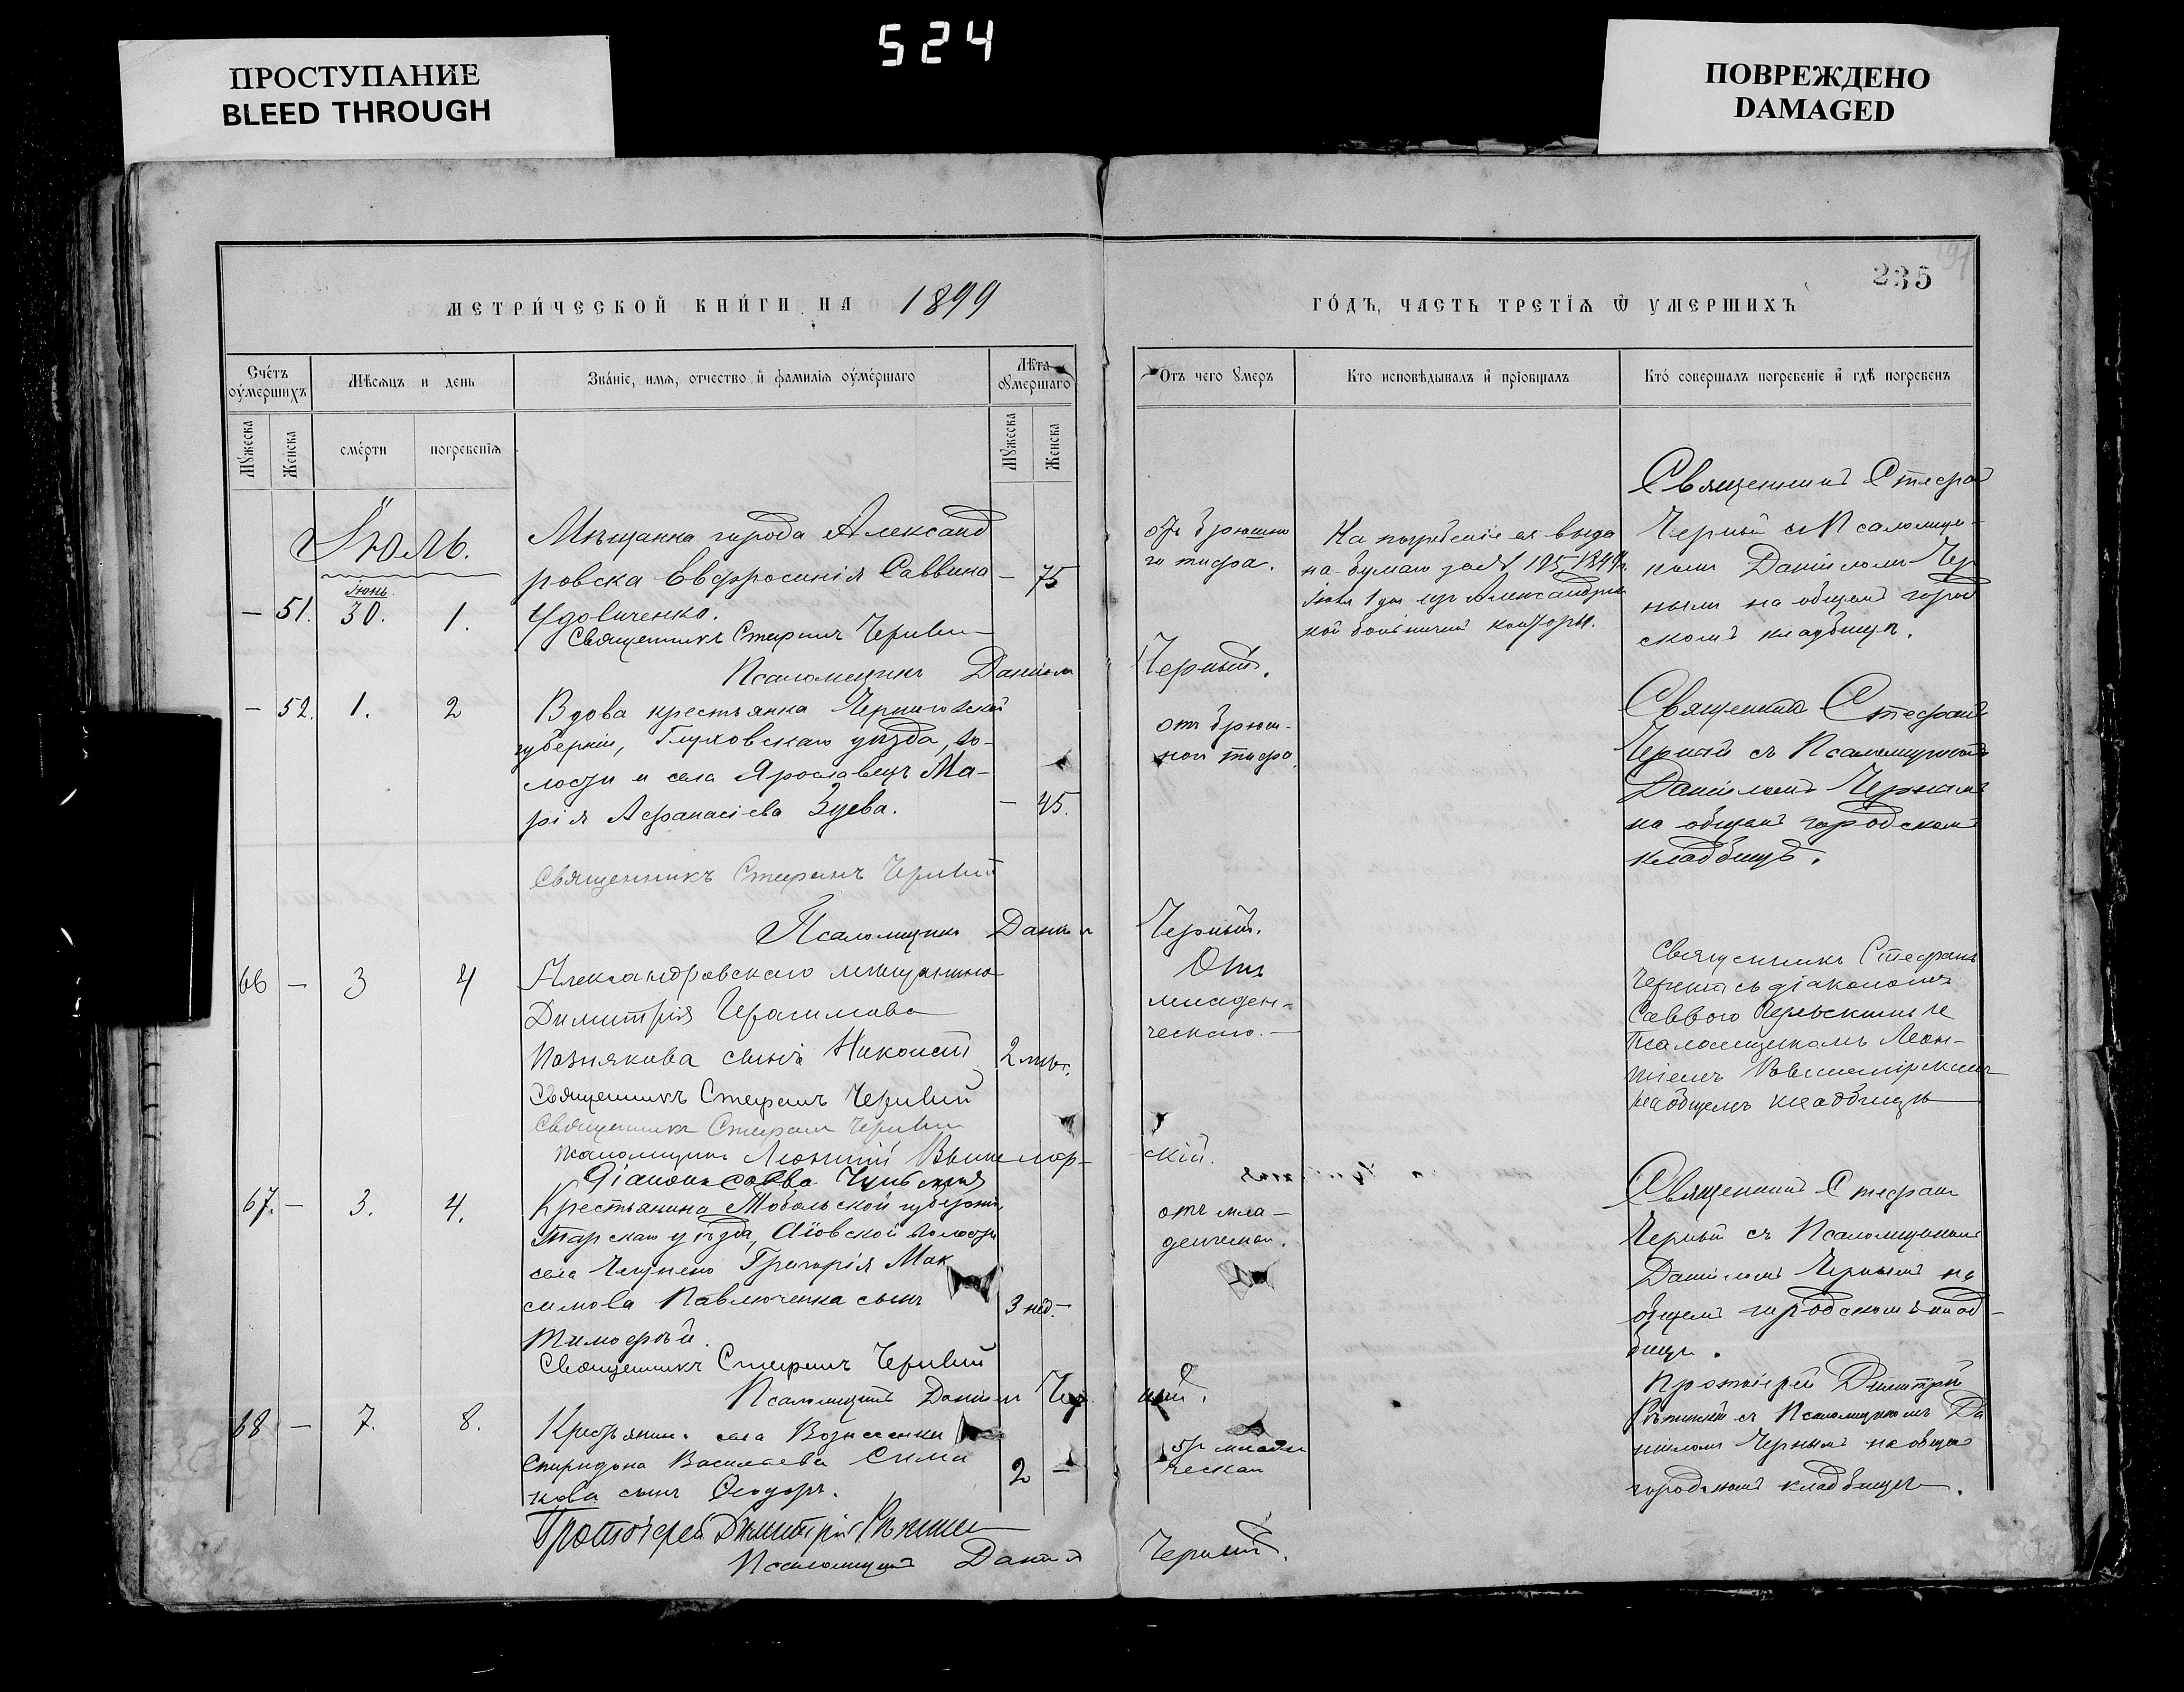 524
ПРОСТУПАНИЕ
BLEED THROUGH
ПОВРЕЖДЕНО
DAMAGED
235
МЕТРИ́ЧЕСКОЙ КНИ́ГИ НА 1899
ГО́ДЪ, ЧАСТЬ ТРЕТІѦ Ѿ УМЕРШИХЪ
Сче́тъ оу҆ме́ршихъ
Мѣсѧцъ и день
Зва́ніе, имѧ, отчество и҆ фамилїѧ оу҆ме́ршаго
Лѣта оу҆мершаго
Отъ чего ꙋмеръ
Кто исповѣдывалъ и҆ прїобщалъ
Кто́ совершалъ погребенїе и҆ гдѣ погребенъ
Мꙋжеска
Женска
сме́рти
погребенїѧ
Мꙋжеска
Женска
Іюль.
Іюнь.
— 51. 30. 1.
Мѣщанка города Александ
ровска Евфросинія Саввина — 75
Удовиченко.
Священникъ Стефанъ Черный
Псаломщикъ Даніилъ Черный.
отъ брюшно
го тифа.
На погребеніе ея выда
на бумага за № 195 1899 г.
Іюля 1 дня изъ Александров
кой больничной конторы.
Священникъ Стефанъ
Черный съ Псаломщи-
комъ Даніиломъ Чер
нымъ на общемъ город
скомъ кладбищѣ.
— 52. 1. 2
Вдова крестьянка Черниговской
губерніи, Глуховскаго уѣзда, во-
лости и села Ярославецъ Ма-
рія Афанасіева Зуева. — 45.
Священникъ Стефанъ Черный
Псаломщикъ Даніилъ Черный.
отъ брюш-
ного тифа.
Священникъ Стефанъ
Черный съ Псаломщикомъ
Даніиломъ Чернымъ
на общемъ городскомъ
кладбищѣ.
66 — 3 4
Александровскаго мѣщанина
Димитрія Герасимова
Познякова сынъ Николай 2 лѣт.
Священникъ Стефанъ Черный
Священникъ Стефанъ Черный
Псаломщикъ Леонтій
Діаконъ Савва
скій.
Отъ
младен-
ческаго.
Священникъ Стефанъ
Черный съ діакономъ
Саввою
Псаломщикомъ Леон-
тіемъ
на общемъ кладбищѣ
67. — 3. 4.
Крестьянина Тобольской губерніи,
Тарскаго уѣзда, волости
села Григорія Мак
симова Павлюченка сынъ 3 нед. —
Тимофей.
Священникъ Стефанъ Черный
Псаломщикъ Даніилъ Черный.
отъ мла-
денческой.
Священникъ Стефанъ
Черный съ Псаломщикомъ
Даніиломъ Чернымъ на
общемъ городскомъ клад-
бищѣ.
68 — 7. 8.
Крестьянина села Вознесенки
Спиридона Васильева Сима
кова сынъ Ѳеодоръ. 2 —
Протоіерей Димитрій
Псаломщикъ Даніилъ Черный.
отъ младен
ческой
Протоіерей Димитрій
съ Псаломщикомъ Да
ніиломъ Чернымъ на общемъ
городскомъ кладбищѣ.